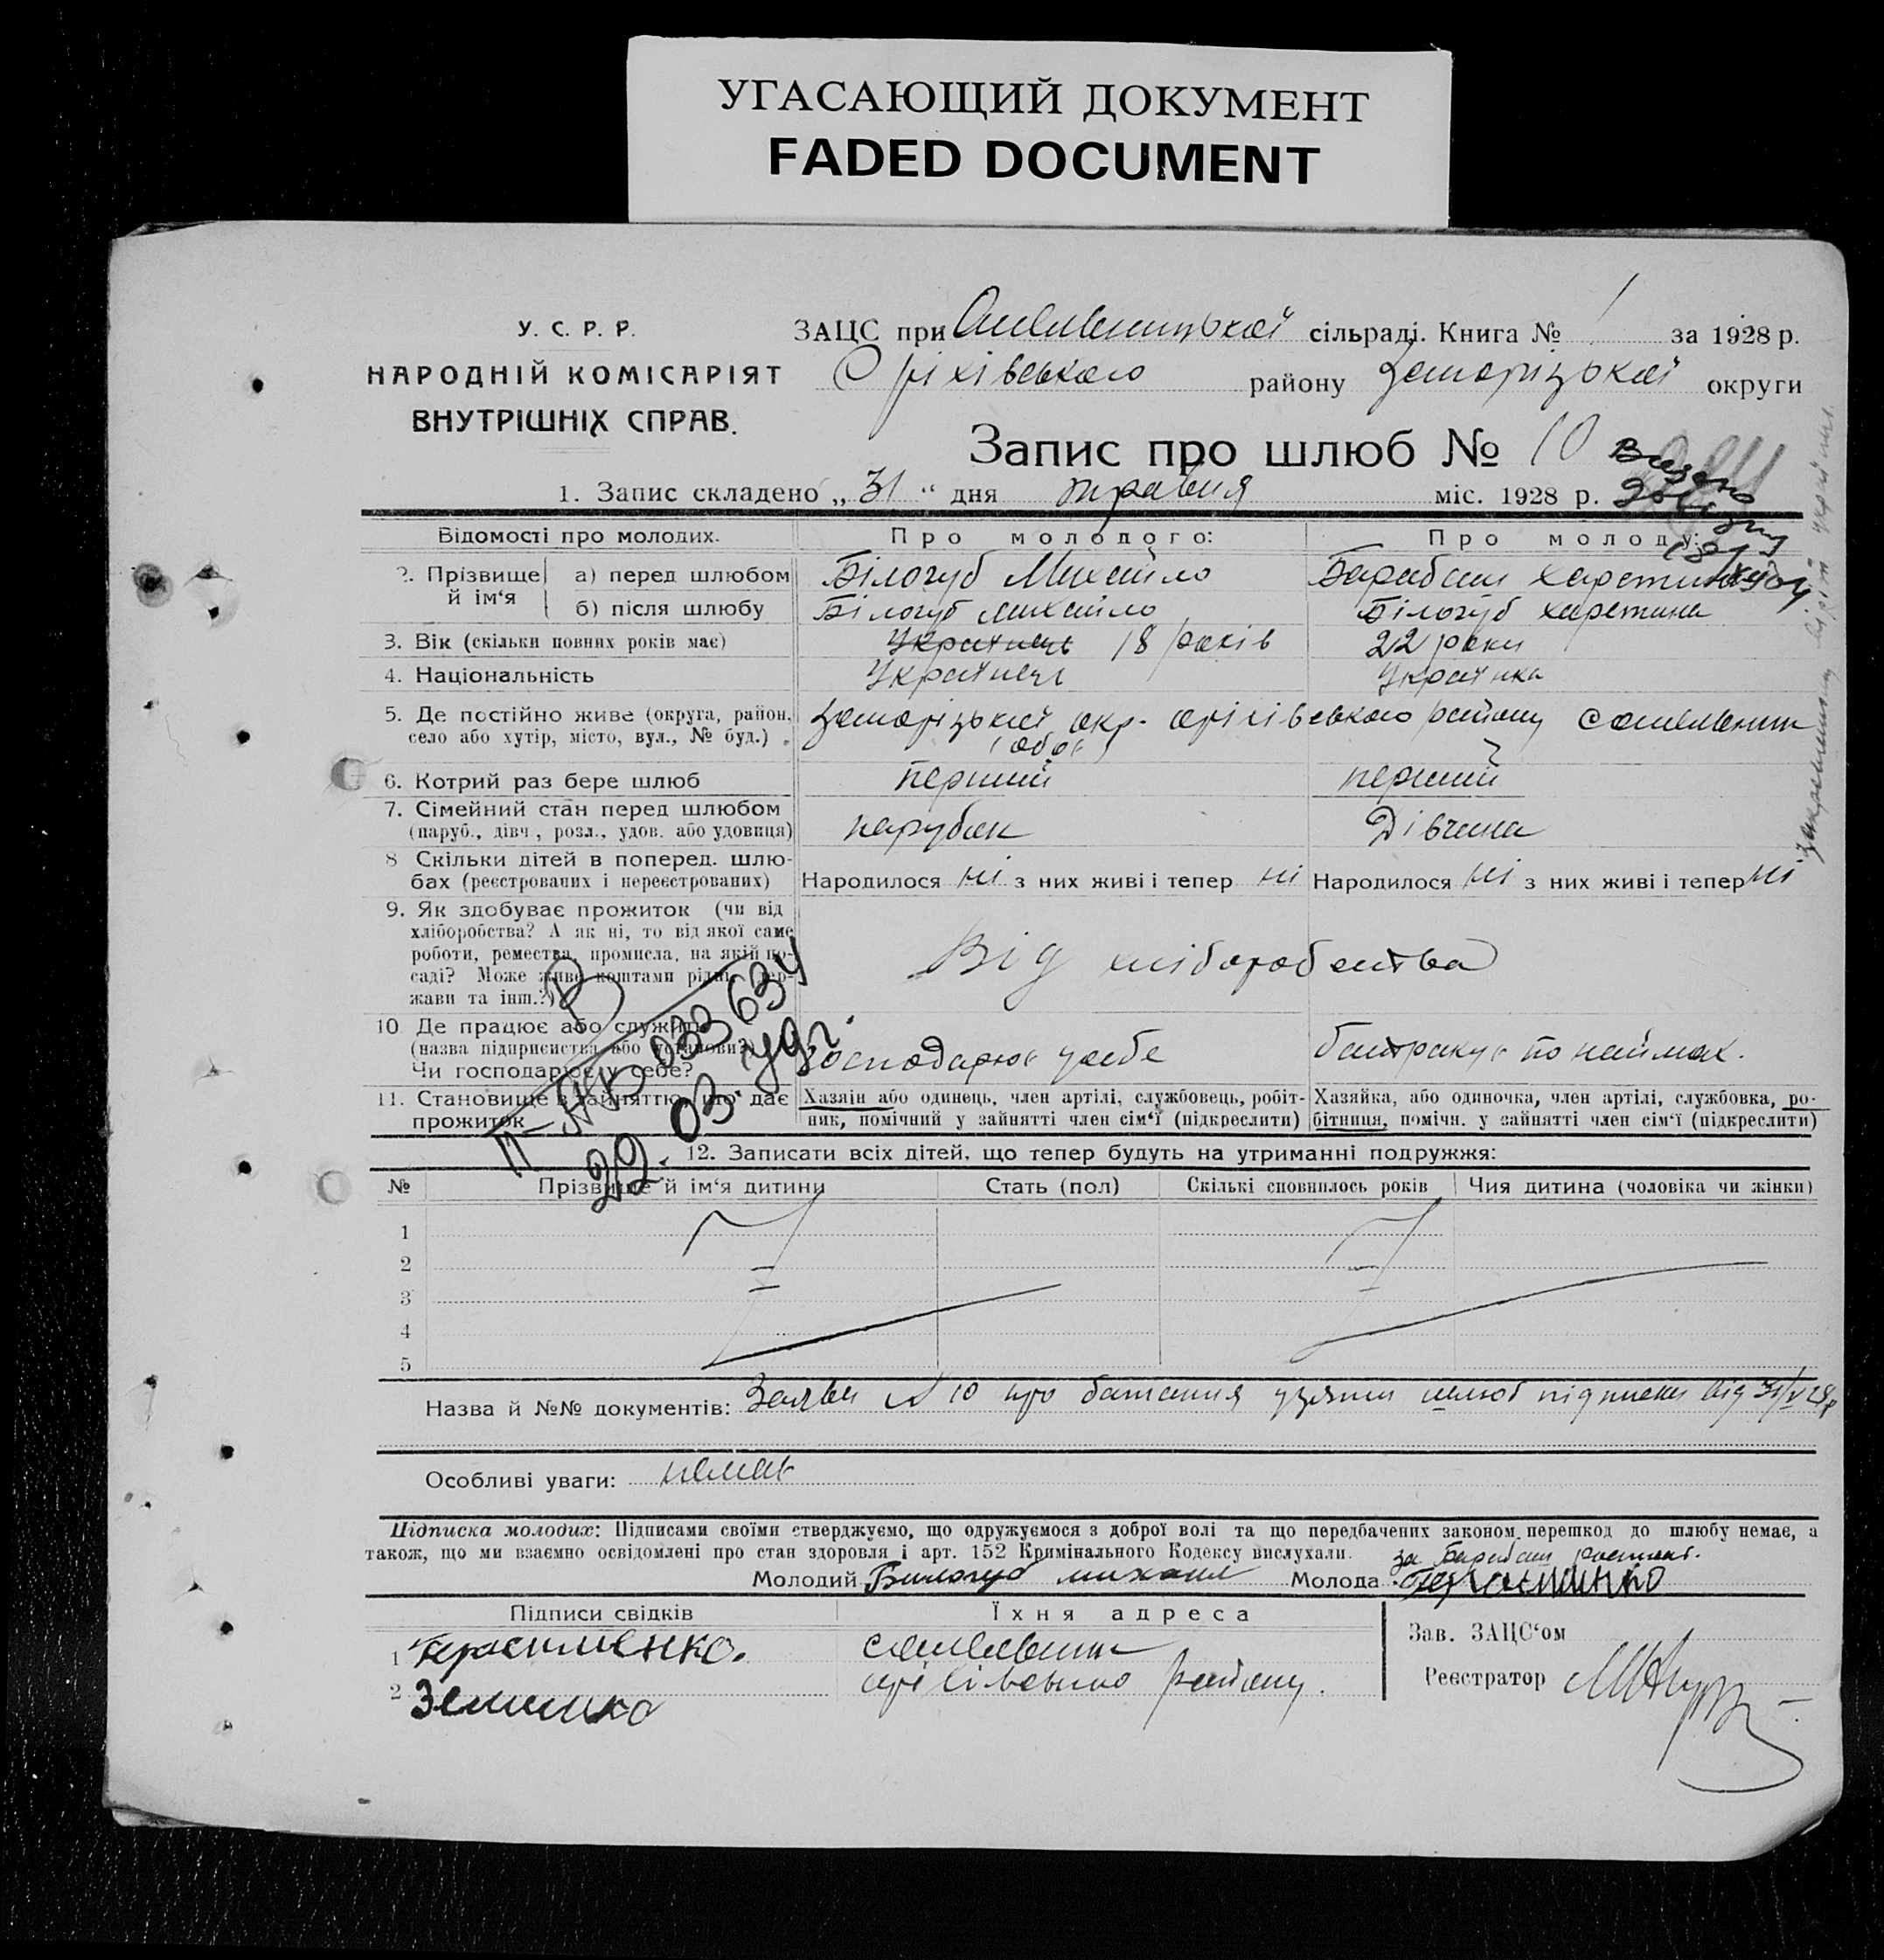 УГАСАЮЩИЙ ДОКУМЕНТ
FADED DOCUMENT
У. С. Р. Р.
НАРОДНІЙ КОМІСАРІЯТ
ВНУТРІШНІХ СПРАВ.
ЗАЦС при сільраді. Книга № 1 за 1928 р.
Оріхівського району Запоріцької округи
Запис про шлюб № 10
1. Запис складено „ 31 “ дня травня міс. 1928 р.
Видано
Відомості про молодих.
Про молодого:
Про молоду:
2. Прізвище й ім‘я
а) перед шлюбом Білогуб Михайло Барабаш Харетина
б) після шлюбу Білогуб михайло Білогуб харетина
3. Вік (скільки повних років має) Українець 18 років 22 роки
4. Національність Українець Українка
5. Де постійно живе (округа, район, село або хутір, місто, вул., № буд.) Запоріцької окр. оріхівського району
(обоє)
6. Котрий раз бере шлюб перший перший
7. Сімейний стан перед шлюбом парубок Дівчина
(паруб., дівч., розл., удов. або удовиця)
8 Скільки дітей в поперед. шлю-
бах (реєстрованих і нереєстрованих) Народилося ні з них живі і тепер ні Народилося ні з них живі і тепер ні
9. Як здобуває прожиток (чи від
хліборобства? А як ні, то від якої саме
роботи, ремества, промисла, на якій по-
саді? Може живе коштами рідні, дер-
жави та інш.?)
Від хліборобства
10 Де працює або служить
(назва підприємства або установи?)
Чи господарює у себе?
господарює у себе
батракує по наймах.
11. Становище в зайняттю, що дає
прожиток
Хазяін або одинець, член артілі, службовець, робіт-
ник, помічний у зайнятті член сім‘ї (підкреслити)
Хазяйка, або одиночка, член артілі, службовка, ро-
бітниця, помічн. у зайнятті член сім‘ї (підкреслити)
П-АБ 033634
29.03.
12. Записати всіх дітей, що тепер будуть на утриманні подружжя:
№ Прізвище й ім‘я дитини Стать (пол) Скількі сповнилось років Чия дитина (чоловіка чи жінки)
1
2
3
4
5
Назва й №№ документів: Заява № 10 про бажання узяти шлюб підписки від 31/V 28р
Особливі уваги: немає
Підписка молодих: Підписами своїми стверджуємо, що одружуємося з доброї волі та що передбачених законом перешкод до шлюбу немає, а
також, що ми взаємно освідомлені про стан здоровля і арт. 152 Кримінального Кодексу вислухали.
за Барабаш
Молодий Билогуб михаил Молода
Підписи свідків Їхня адреса
1 Герасименко.
2
оріхівського району.
Зав. ЗАЦС‘ом
Реєстратор